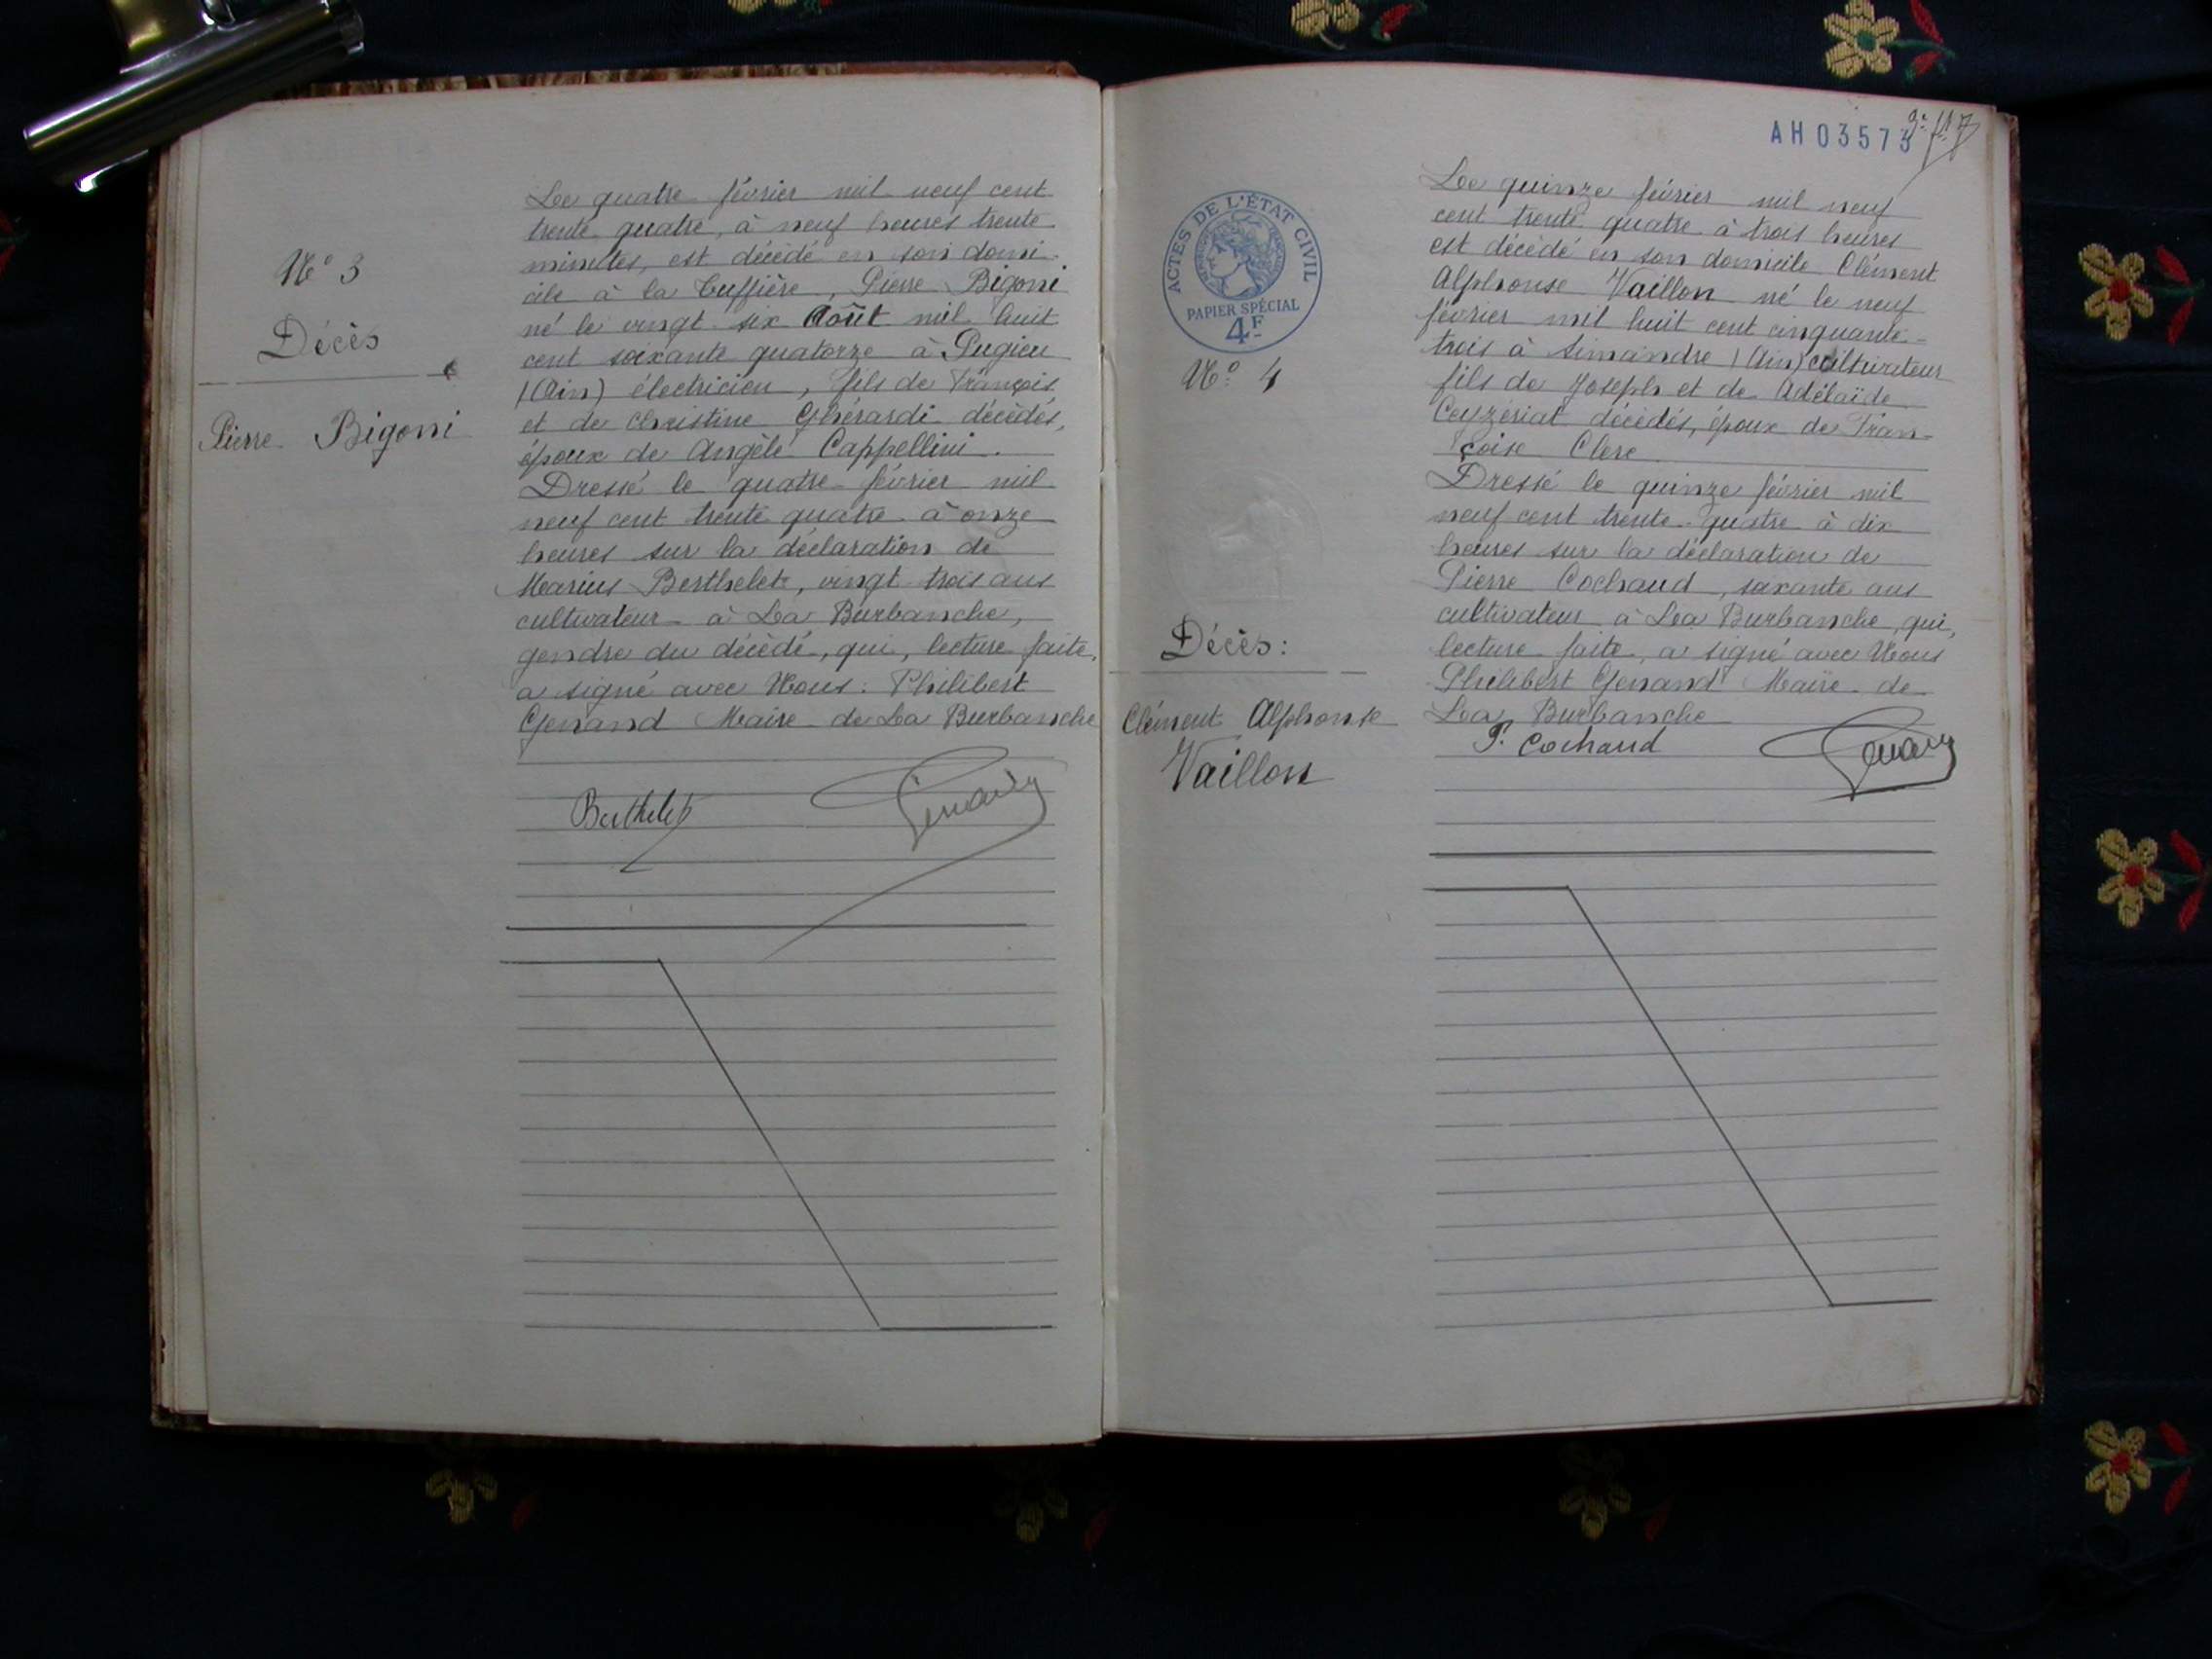 N° 3
Décès
Pierre Bigoni
Le quatre février mil neuf cent
trente quatre, à neuf heures trente
minutes, est décédé en son domi-
cile à La Cuffière, Pierre Bigoni
né le vingt six Août mil huit
cent soixante quatorze à Pugieu
(Ain) électricien, fils de François
et de Christine Ghérardi décédés,
époux de Angèle Cappellini.
Dressé le quatre février mil
neuf cent trente quatre à onze
heures sur la déclaration de
Marius Berthelet, vingt trois ans
cultivateur à La Burbanche,
gendre du décédé, qui, lecture faite,
a signé avec Nous: Philibert
Genand Maire de La Burbanche
Berthelet
Genand
AH 03573
ACTES DE L'ÉTAT CIVIL
PAPIER SPÉCIAL
4F
N° 4
Décès:
Clément Alphonse
Vaillon
Le quinze février mil neuf
cent trente quatre à trois heures
est décédé en son domicile Clément
Alphonse Vaillon né le neuf
février mil huit cent cinquante-
trois à Simandre (Ain) cultivateur
fils de Joseph et de Adélaïde
Ceyzériat décédés, époux de Fran-
çoise Clerc
Dressé le quinze février mil
neuf cent trente-quatre à dix
heures sur la déclaration de
Pierre Cochaud, soixante ans
cultivateur à La Burbanche, qui,
lecture faite, a signé avec Nous
Philibert Genand Maire de
La Burbanche
P. Cochaud
Genand